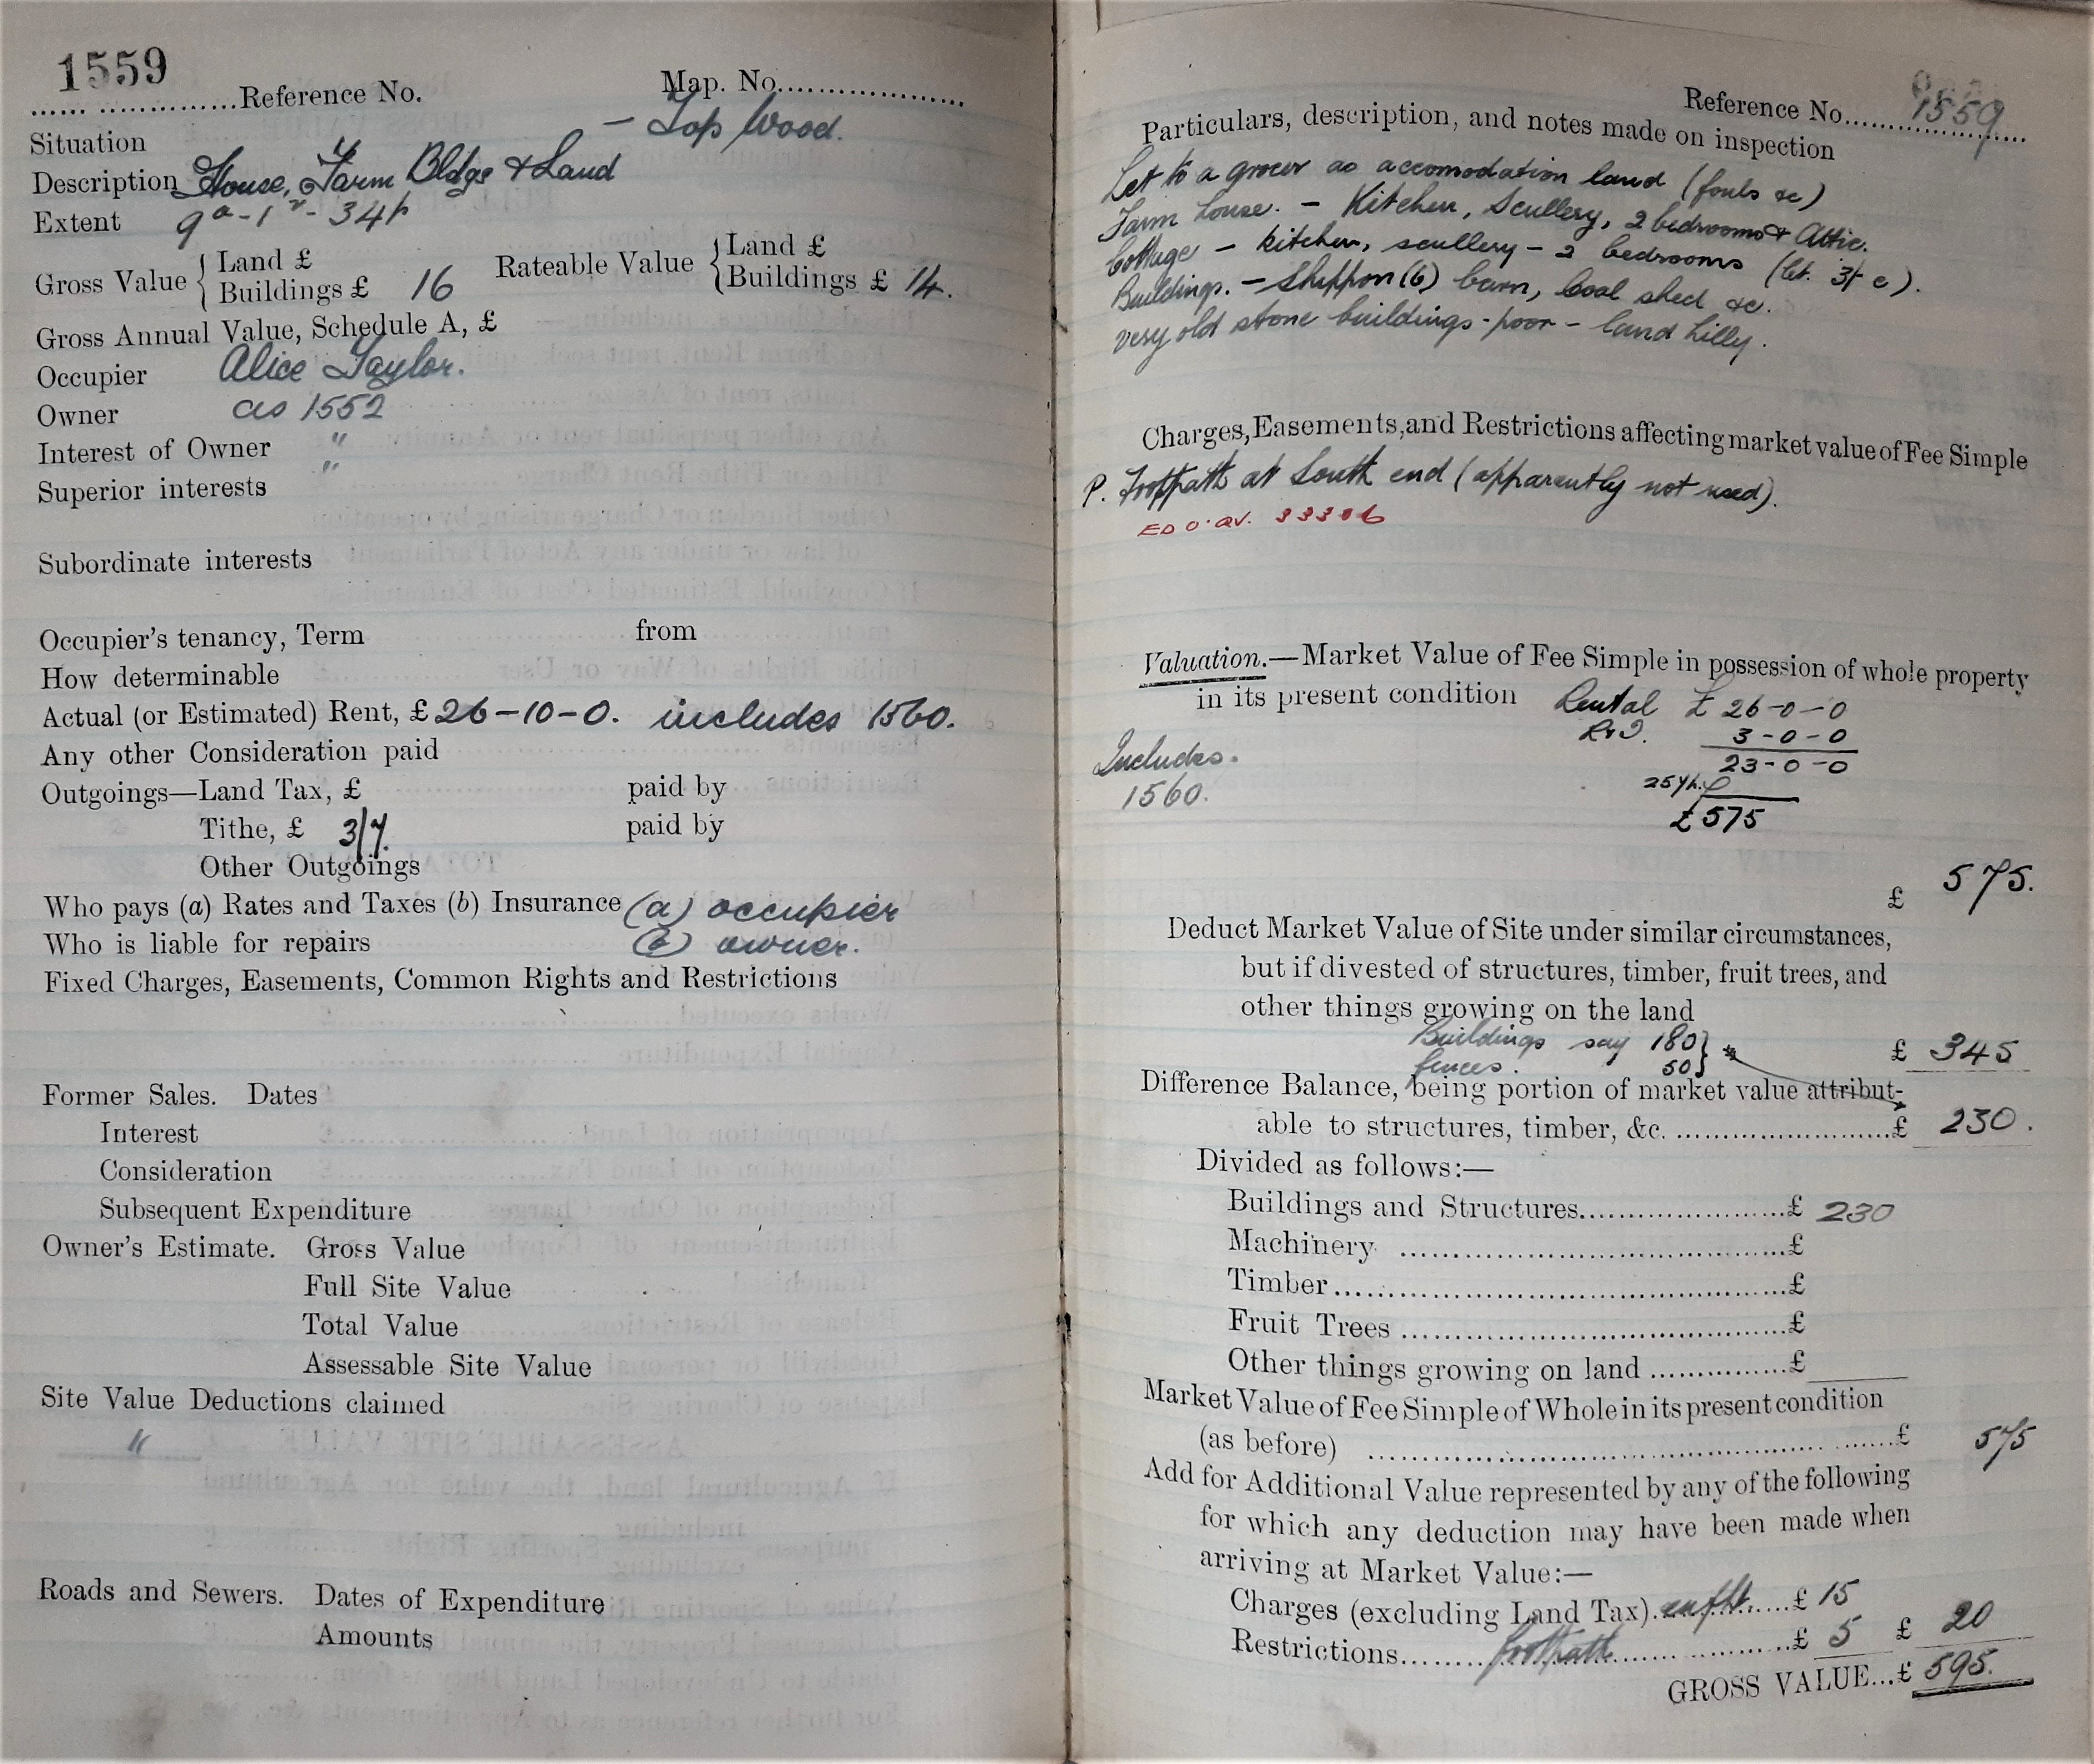 1559
Reference No. Map. No.
Situation – Top Wood.
Description House, Farm Bldgs & Land
Extent 9a - 1r - 34p
Gross Value { Land £ Rateable Value { Land £
Buildings £ 16 Buildings £ 14.
Gross Annual Value, Schedule A, £
Occupier Alice Taylor.
Owner as 1552
Interest of Owner "
Superior interests "
Subordinate interests
Occupier's tenancy, Term from
How determinable
Actual (or Estimated) Rent, £ 26-10-0. includes 1560.
Any other Consideration paid
Outgoings—Land Tax, £ paid by
Tithe, £ 3/7. paid by
Other Outgoings
Who pays (a) Rates and Taxes (b) Insurance (a) occupier
Who is liable for repairs (b) owner.
Fixed Charges, Easements, Common Rights and Restrictions
Former Sales. Dates
Interest
Consideration
Subsequent Expenditure
Owner's Estimate. Gross Value
Full Site Value
Total Value
Assessable Site Value
Site Value Deductions claimed
"
Roads and Sewers. Dates of Expenditure
Amounts
Reference No. 1559
Particulars, description, and notes made on inspection
Let to a grocer as accomodation land (fouls &c)
Farm house. – Kitchen, Scullery, 2 bedrooms & Attic.
Cottage – kitchen, scullery – 2 bedrooms (let. 3/- c).
Buildings. – Shippon (6) barn, Coal shed &c.
very old stone buildings - poor – land hilly.
Charges, Easements, and Restrictions affecting market value of Fee Simple
P. Footpath at South end (apparently not used).
33306
Valuation.—Market Value of Fee Simple in possession of whole property
in its present condition Rental £ 26-0-0
R & I. 3-0-0
Includes. 23-0-0
1560. 25 Y.P.
£575
£ 575.
Deduct Market Value of Site under similar circumstances,
but if divested of structures, timber, fruit trees, and
other things growing on the land
Buildings say 180 } * £ 345
fences. 50 }
Difference Balance, being portion of market value attribut-
able to structures, timber, &c. £ 230.
Divided as follows:—
Buildings and Structures £ 230
Machinery £
Timber £
Fruit Trees £
Other things growing on land £
Market Value of Fee Simple of Whole in its present condition
(as before) £ 575
Add for Additional Value represented by any of the following
for which any deduction may have been made when
arriving at Market Value:—
Charges (excluding Land Tax) £ 15
Restrictions footpath £ 5 £ 20
GROSS VALUE...£ 595.